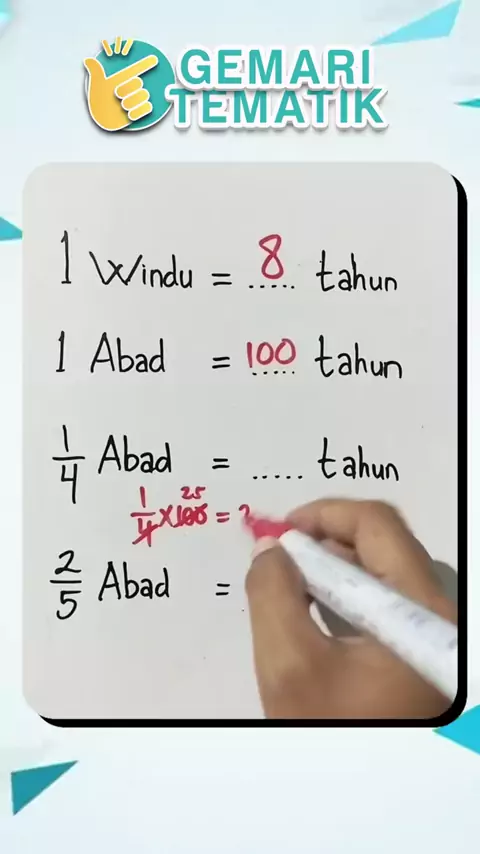 GEMARI
TEMATIK
1 Windu = 8 tahun
1 Abad = 100 tahun
1/4 Abad = ..... tahun
1/4 x 100 25 =
2/5 Abad =